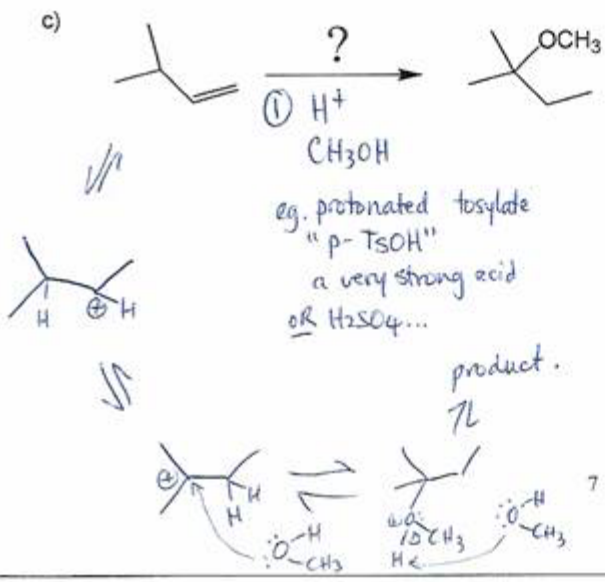 c)
?
OCH3
① H+
CH3OH
eg. protonated tosylate
"p-TsOH"
a very strong acid
OR H2SO4...
H
⊕ H
product.
⊕
H
H
:O-H
CH3
O
CH3
H
:O-H
CH3
7